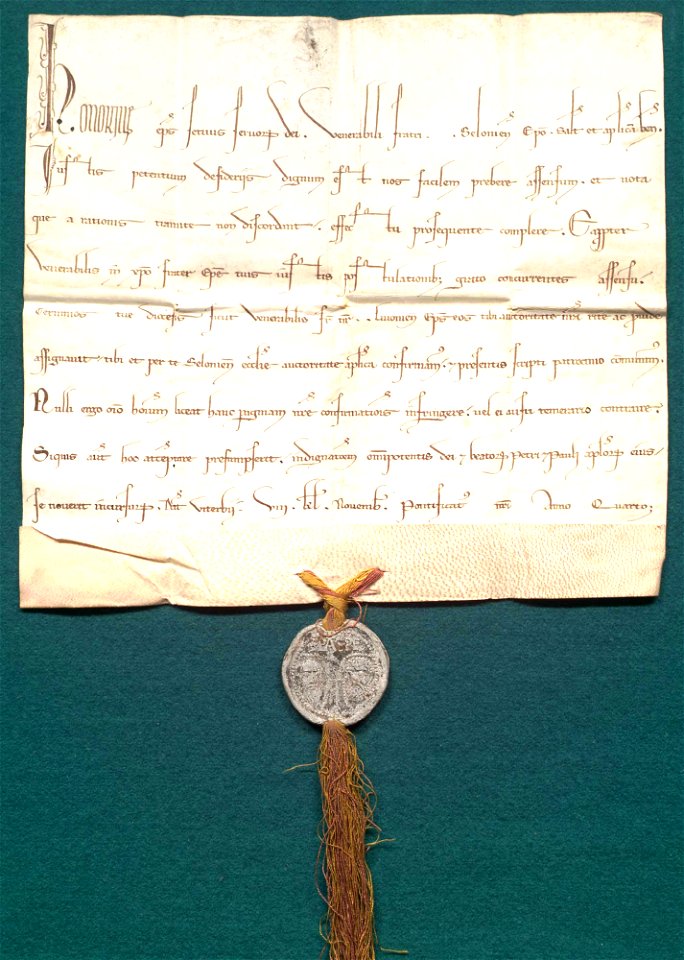 Honorius ep̄s seruus seruoꝝ dei. Venerabili fratri. Seloniem̄ Ep̄o. Salt̄ et ap̄licā ben̄.
Iustis petentium desiderijs dignum est nos facilem prebere assensum. et uota
que a rationis tramite non discordant. effectu prosequente complere. Eapropter
Venerabilis in xp̄o frater Ep̄e tuis iustis postulationib; grato concurrentes assensu.
terminos tue diocesis sicut venerabilis fr̄ nr̄ . . Liuonien̄ Ep̄s eos tibi auctoritate nr̄a rite ac prouide
assignauit. tibi et per te Selonien̄ ecclīe auctoritate ap̄lica confirmam̄. ⁊ presentis scripti patrocinio com̄unim̄.
Nulli ergo om̄o hominum liceat hanc paginam nr̄e confirmationis infringere. uel ei ausu temerario contraire.
Siquis aut̄ hoc attemptare presumpserit. indignatōem om̄ipotentis dei ⁊ beatoꝝ Petri ⁊ Pauli ap̄loꝝ eius
se nouerit incursurꝝ. Dat̄ Viterbij. VIII. kl̄. Nouemb̄. Pontificat̄ nr̄i Anno Quarto;